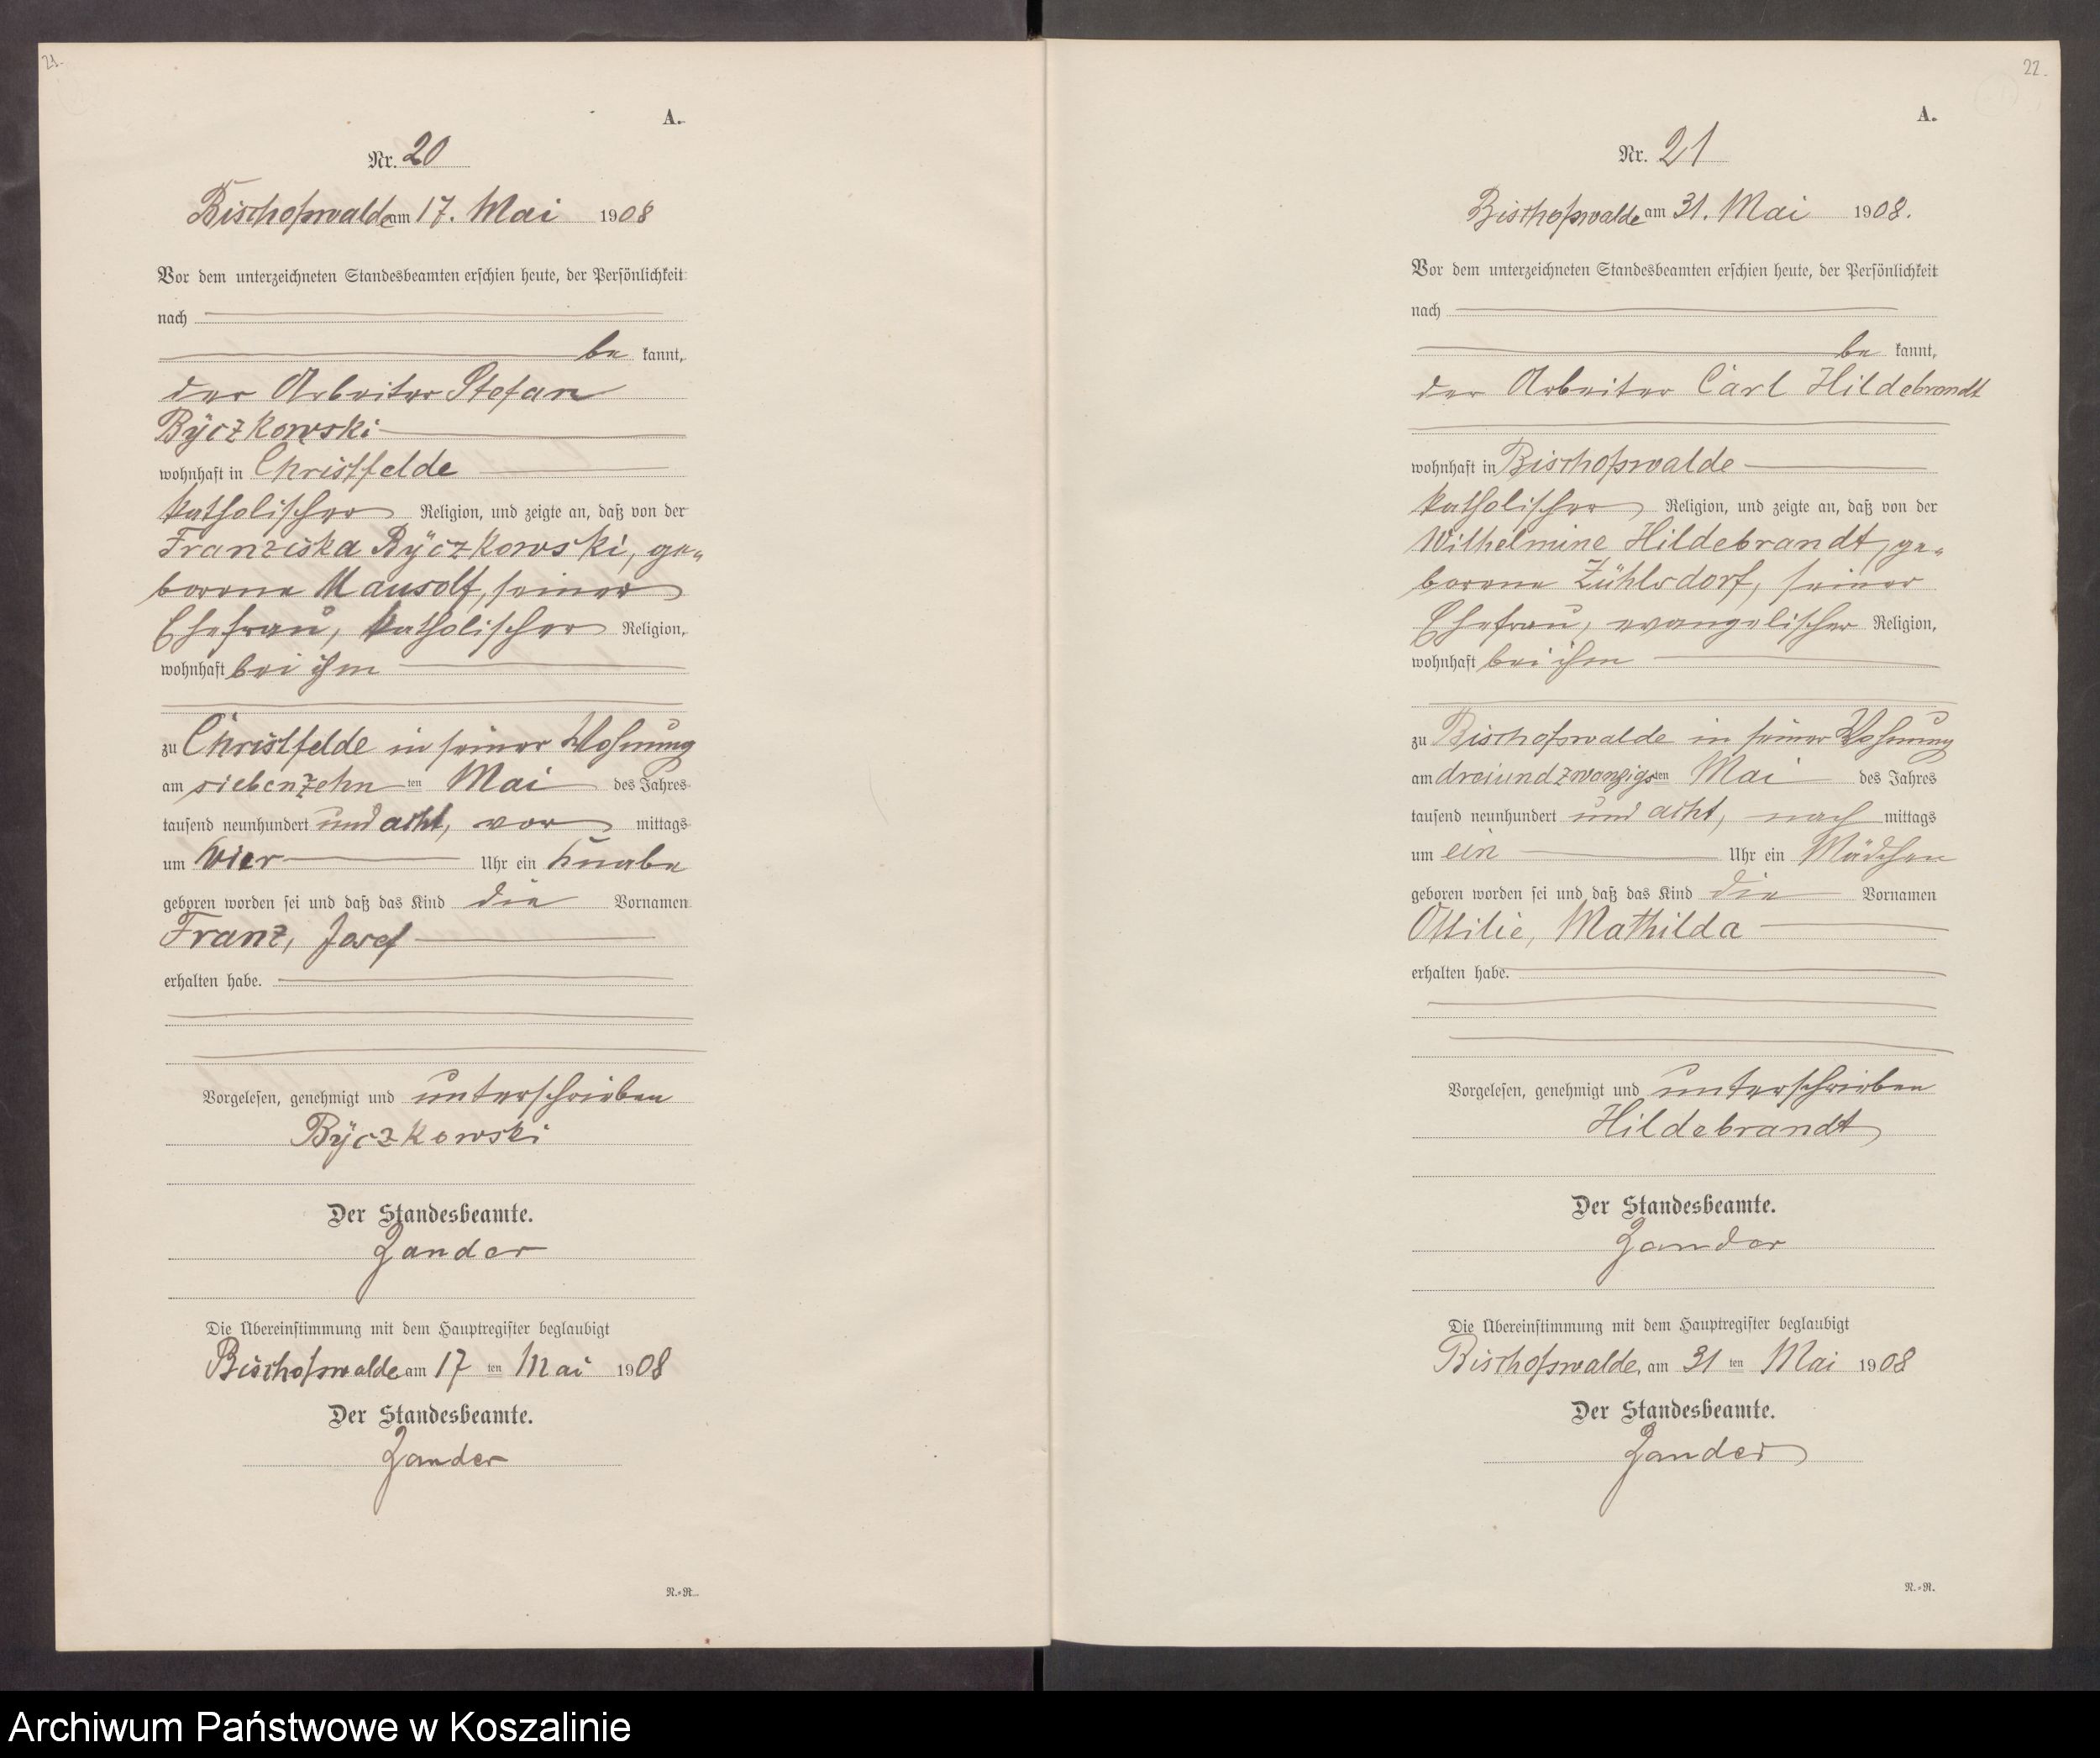 21.
A.
Nr. 20
Bischofswalde am 17. Mai 1908
Vor dem unterzeichneten Standesbeamten erschien heute, der Persönlichkeit
nach
be kannt,
der Arbeiter Stefan
Bÿczkowski
wohnhaft in Christfelde
katholischer Religion, und zeigte an, daß von der
Franziska Bÿczkowski, ge„
borene Mausolf, seiner
Ehefrau, katholischer Religion,
wohnhaft bei ihm
zu Christfelde in seiner Wohnung
am siebenzehn ten Mai des Jahres
tausend neunhundert und acht, vor mittags
um vier Uhr ein Knabe
geboren worden sei und daß das Kind die Vornamen
Franz, Josef
erhalten habe.
Vorgelesen, genehmigt und unterschrieben
Bÿczkowski
Der Standesbeamte.
Zander
Die Übereinstimmung mit dem Hauptregister beglaubigt
Bischofswalde am 17 ten Mai 1908
Der Standesbeamte.
Zander
N.=R.
22.
A.
Nr. 21
Bischofswalde am 31. Mai 1908.
Vor dem unterzeichneten Standesbeamten erschien heute, der Persönlichkeit
nach
be kannt,
der Arbeiter Carl Hildebrandt
wohnhaft in Bischofswalde
katholischer Religion, und zeigte an, daß von der
Wilhelmine Hildebrandt, ge„
borene Zühlsdorf, seiner
Ehefrau, evangelischer Religion,
wohnhaft bei ihm
zu Bischofswalde in seiner Wohnung
am dreiundzwanzigsten Mai des Jahres
tausend neunhundert und acht, nach mittags
um ein Uhr ein Mädchen
geboren worden sei und daß das Kind die Vornamen
Ottilie, Mathilda
erhalten habe.
Vorgelesen, genehmigt und unterschrieben
Hildebrandt
Der Standesbeamte.
Zander
Die Übereinstimmung mit dem Hauptregister beglaubigt
Bischofswalde, am 31 ten Mai 1908
Der Standesbeamte.
Zander
N.=R.
Archiwum Państwowe w Koszalinie